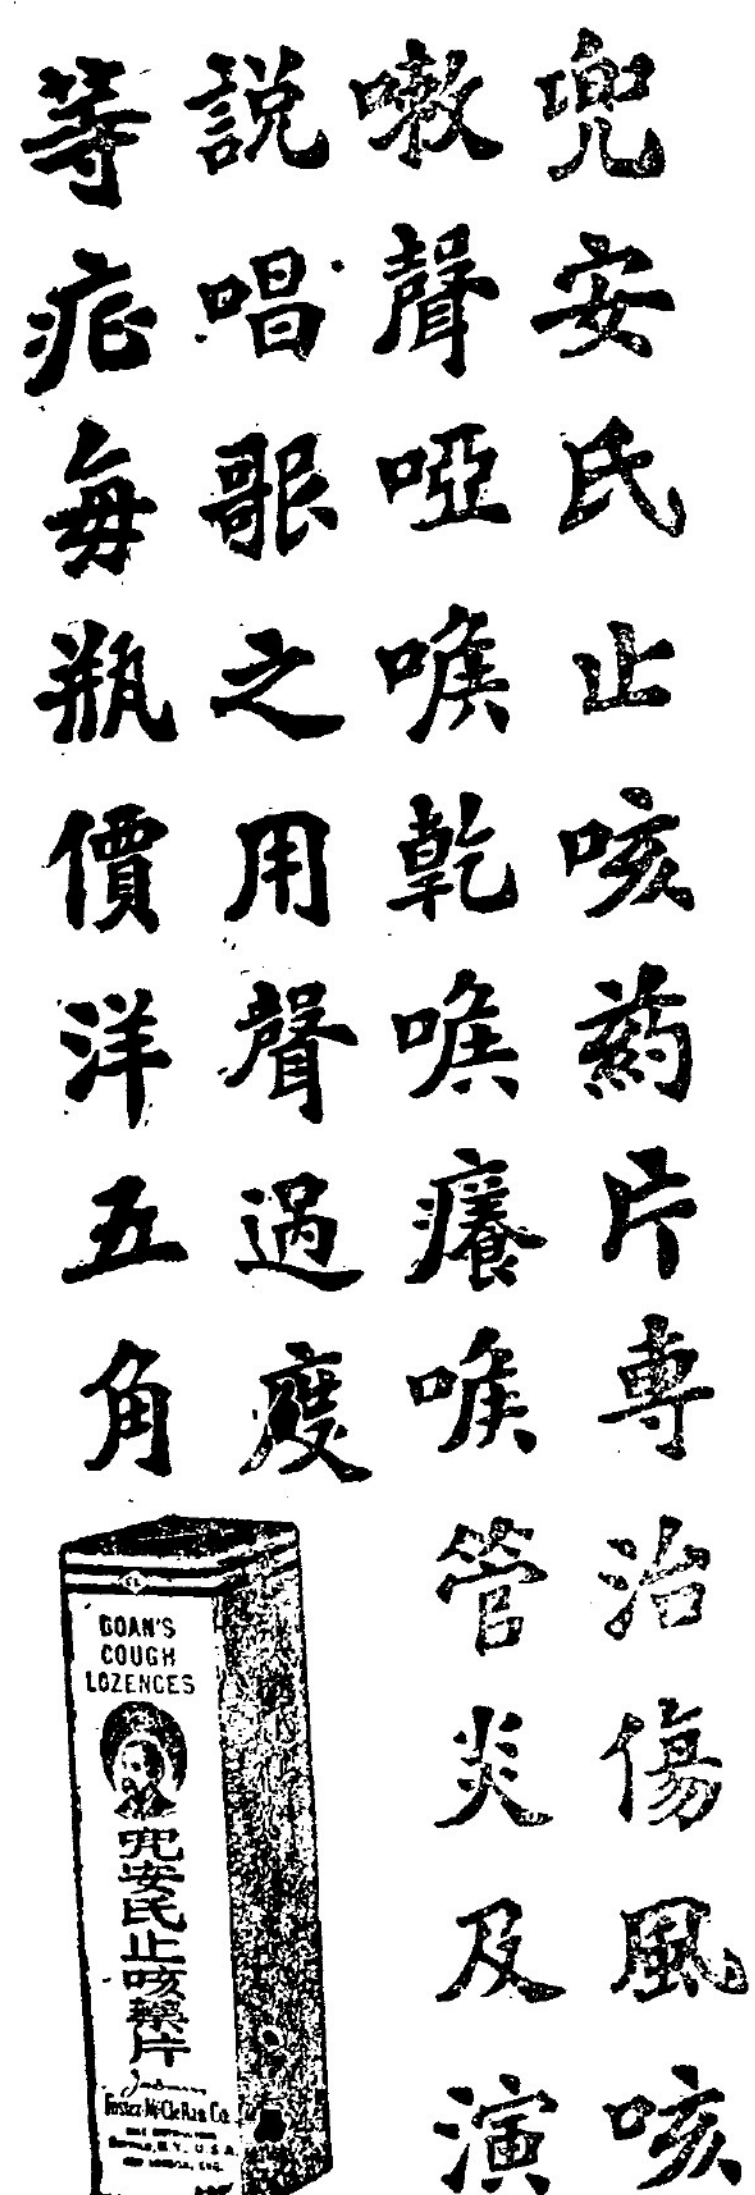 兜安氏止咳葯片專治傷風咳
嗽聲啞喉乾喉癢喉管炎及演
說唱歌之用聲過度
等症每瓶價洋五角
DOAN'S
COUGH
LOZENGES
兜安氏止咳藥片
Foster-McClellan Co.
BUFFALO, N.Y., U.S.A.